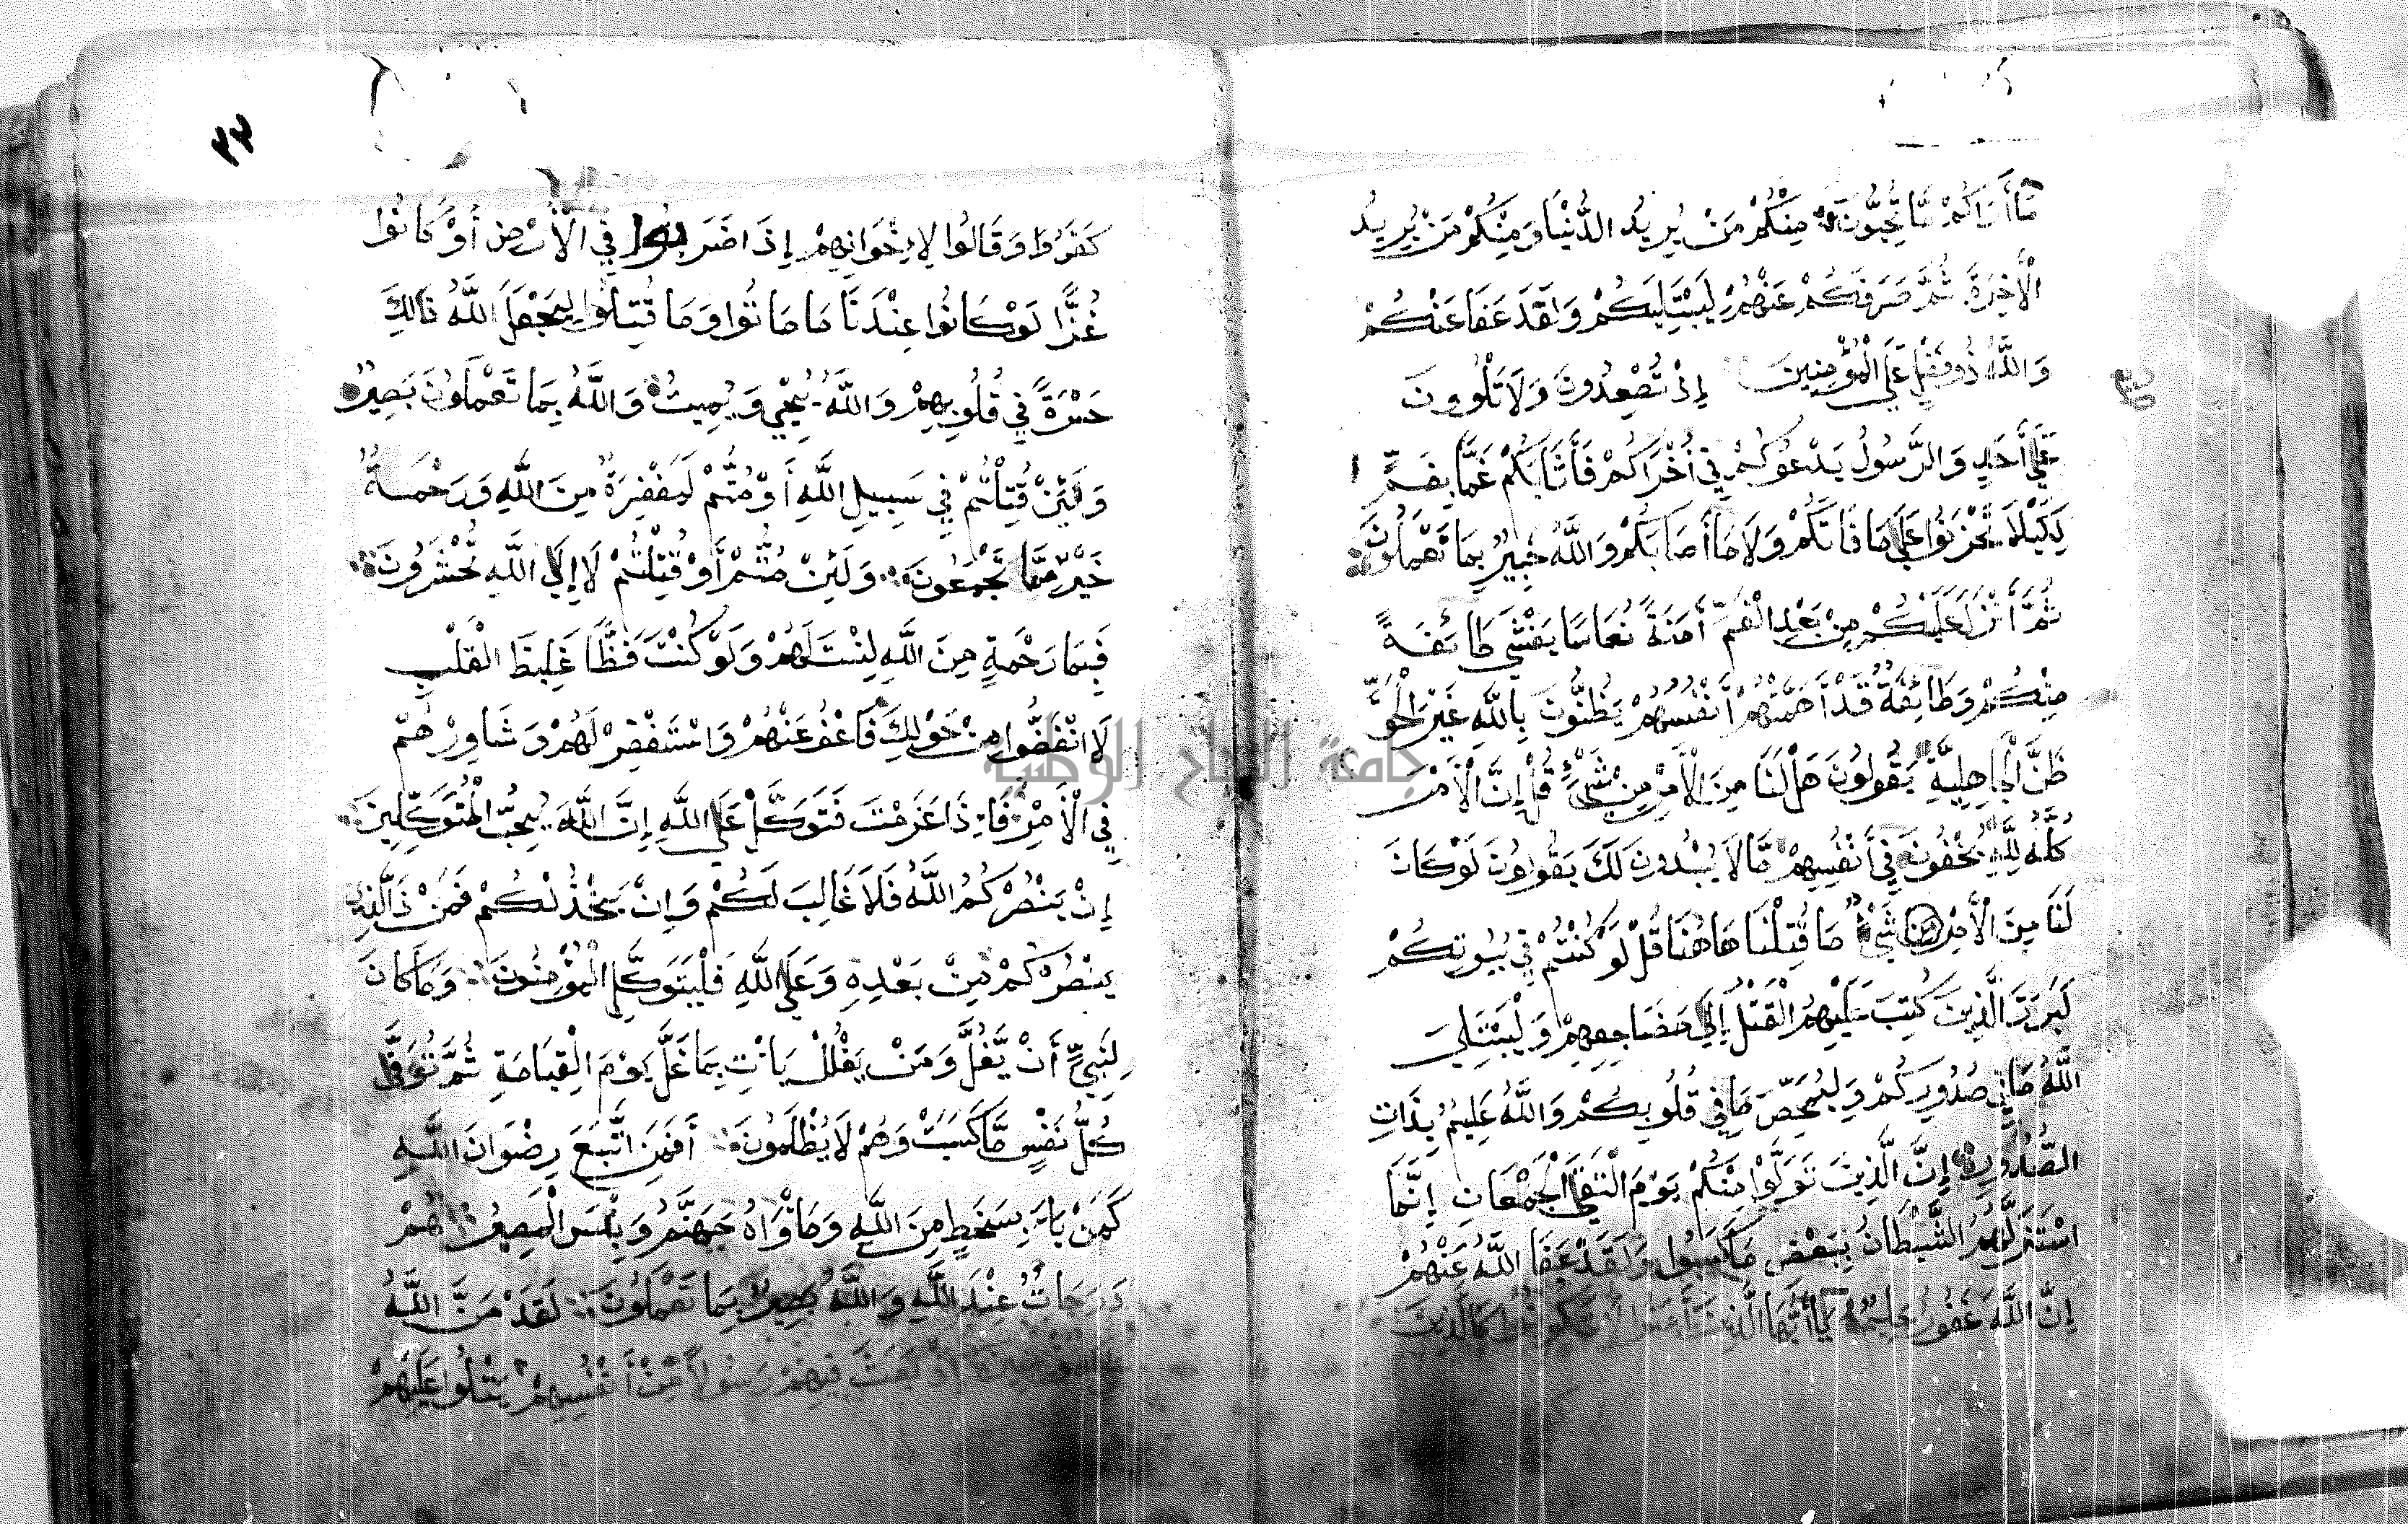 مَا أَرَاكُمْ مَّا تُحِبُّونَ مِنْكُمْ مَنْ يُرِيدُ الدُّنْيَا وَمِنْكُمْ مَنْ يُرِيدُ
الْآخِرَةَ ثُمَّ صَرَفَكُمْ عَنْهُمْ لِيَبْتَلِيَكُمْ وَلَقَدْ عَفَا عَنْكُمْ
وَاللَّهُ ذُو فَضْلٍ عَلَى الْمُؤْمِنِينَ إِذْ تُصْعِدُونَ وَلَا تَلْوُونَ
عَلَى أَحَدٍ وَالرَّسُولُ يَدْعُوكُمْ فِي أُخْرَاكُمْ فَأَثَابَكُمْ غَمًّا بِغَمٍّ
لِكَيْلَا تَحْزَنُوا عَلَى مَا فَاتَكُمْ وَلَا مَا أَصَابَكُمْ وَاللَّهُ خَبِيرٌ بِمَا تَعْمَلُونَ
ثُمَّ أَنْزَلَ عَلَيْكُمْ مِنْ بَعْدِ الْغَمِّ أَمَنَةً نُعَاسًا يَغْشَى طَائِفَةً
مِنْكُمْ وَطَائِفَةٌ قَدْ أَهَمَّتْهُمْ أَنْفُسُهُمْ يَظُنُّونَ بِاللَّهِ غَيْرَ الْحَقِّ
ظَنَّ الْجَاهِلِيَّةِ يَقُولُونَ هَلْ لَنَا مِنَ الْأَمْرِ مِنْ شَيْءٍ قُلْ إِنَّ الْأَمْرَ
كُلَّهُ لِلَّهِ يُخْفُونَ فِي أَنْفُسِهِمْ مَّا لَا يُبْدُونَ لَكَ يَقُولُونَ لَوْ كَانَ
لَنَا مِنَ الْأَمْرِ شَيْءٌ مَا قُتِلْنَا هَاهُنَا قُلْ لَوْ كُنْتُمْ فِي بُيُوتِكُمْ
لَبَرَزَ الَّذِينَ كُتِبَ عَلَيْهِمُ الْقَتْلُ إِلَى مَضَاجِعِهِمْ وَلِيَبْتَلِيَ
اللَّهُ مَا فِي صُدُورِكُمْ وَلِيُمَحِّصَ مَا فِي قُلُوبِكُمْ وَاللَّهُ عَلِيمٌ بِذَاتِ
الصُّدُورِ إِنَّ الَّذِينَ تَوَلَّوْا مِنْكُمْ يَوْمَ الْتَقَى الْجَمْعَانِ إِنَّمَا
اسْتَزَلَّهُمُ الشَّيْطَانُ بِبَعْضِ مَا كَسَبُوا وَلَقَدْ عَفَا اللَّهُ عَنْهُمْ
إِنَّ اللَّهَ غَفُورٌ حَلِيمٌ يَا أَيُّهَا الَّذِينَ آمَنُوا لَا تَكُونُوا كَالَّذِينَ
٣٣
كَفَرُوا وَقَالُوا لِإِخْوَانِهِمْ إِذَا ضَرَبُوا فِي الْأَرْضِ أَوْ كَانُوا
غُزًّا لَوْ كَانُوا عِنْدَنَا مَا مَاتُوا وَمَا قُتِلُوا لِيَجْعَلَ اللَّهُ ذَالِكَ
حَسْرَةً فِي قُلُوبِهِمْ وَاللَّهُ يُحْيِي وَيُمِيتُ وَاللَّهُ بِمَا تَعْمَلُونَ بَصِيرٌ
وَلَئِنْ قُتِلْتُمْ فِي سَبِيلِ اللَّهِ أَوْ مُتُّمْ لَمَغْفِرَةٌ مِنَ اللَّهِ وَرَحْمَةٌ
خَيْرٌ مِمَّا تَجْمَعُونَ وَلَئِنْ مُتُّمْ أَوْ قُتِلْتُمْ لَا إِلَى اللَّهِ تُحْشَرُونَ
فَبِمَا رَحْمَةٍ مِنَ اللَّهِ لِنْتَ لَهُمْ وَلَوْ كُنْتَ فَظًّا غَلِيظَ الْقَلْبِ
لَا انْفَضُّوا مِنْ حَوْلِكَ فَاعْفُ عَنْهُمْ وَاسْتَغْفِرْ لَهُمْ وَشَاوِرْهُمْ
فِي الْأَمْرِ فَإِذَا عَزَمْتَ فَتَوَكَّلْ عَلَى اللَّهِ إِنَّ اللَّهَ يُحِبُّ الْمُتَوَكِّلِينَ
إِنْ يَنْصُرْكُمُ اللَّهُ فَلَا غَالِبَ لَكُمْ وَإِنْ يَخْذُلْكُمْ فَمَنْ ذَا الَّذِي
يَنْصُرُكُمْ مِنْ بَعْدِهِ وَعَلَى اللَّهِ فَلْيَتَوَكَّلِ الْمُؤْمِنُونَ وَمَا كَانَ
لِنَبِيٍّ أَنْ يَّغُلَّ وَمَنْ يَغْلُلْ يَأْتِ بِمَا غَلَّ يَوْمَ الْقِيَامَةِ ثُمَّ تُوَفَّى
كُلُّ نَفْسٍ مَّا كَسَبَتْ وَهُمْ لَا يُظْلَمُونَ أَفَمَنِ اتَّبَعَ رِضْوَانَ اللَّهِ
كَمَنْ بَاءَ بِسَخَطٍ مِنَ اللَّهِ وَمَأْوَاهُ جَهَنَّمُ وَبِئْسَ الْمَصِيرُ هُمْ
دَرَجَاتٌ عِنْدَ اللَّهِ وَاللَّهُ بَصِيرٌ بِمَا تَعْمَلُونَ لَقَدْ مَنَّ اللَّهُ
عَلَى الْمُؤْمِنِينَ إِذْ بَعَثَ فِيهِمْ رَسُولًا مِنْ أَنْفُسِهِمْ يَتْلُوا عَلَيْهِمْ
جامعة النجاح الوطنية